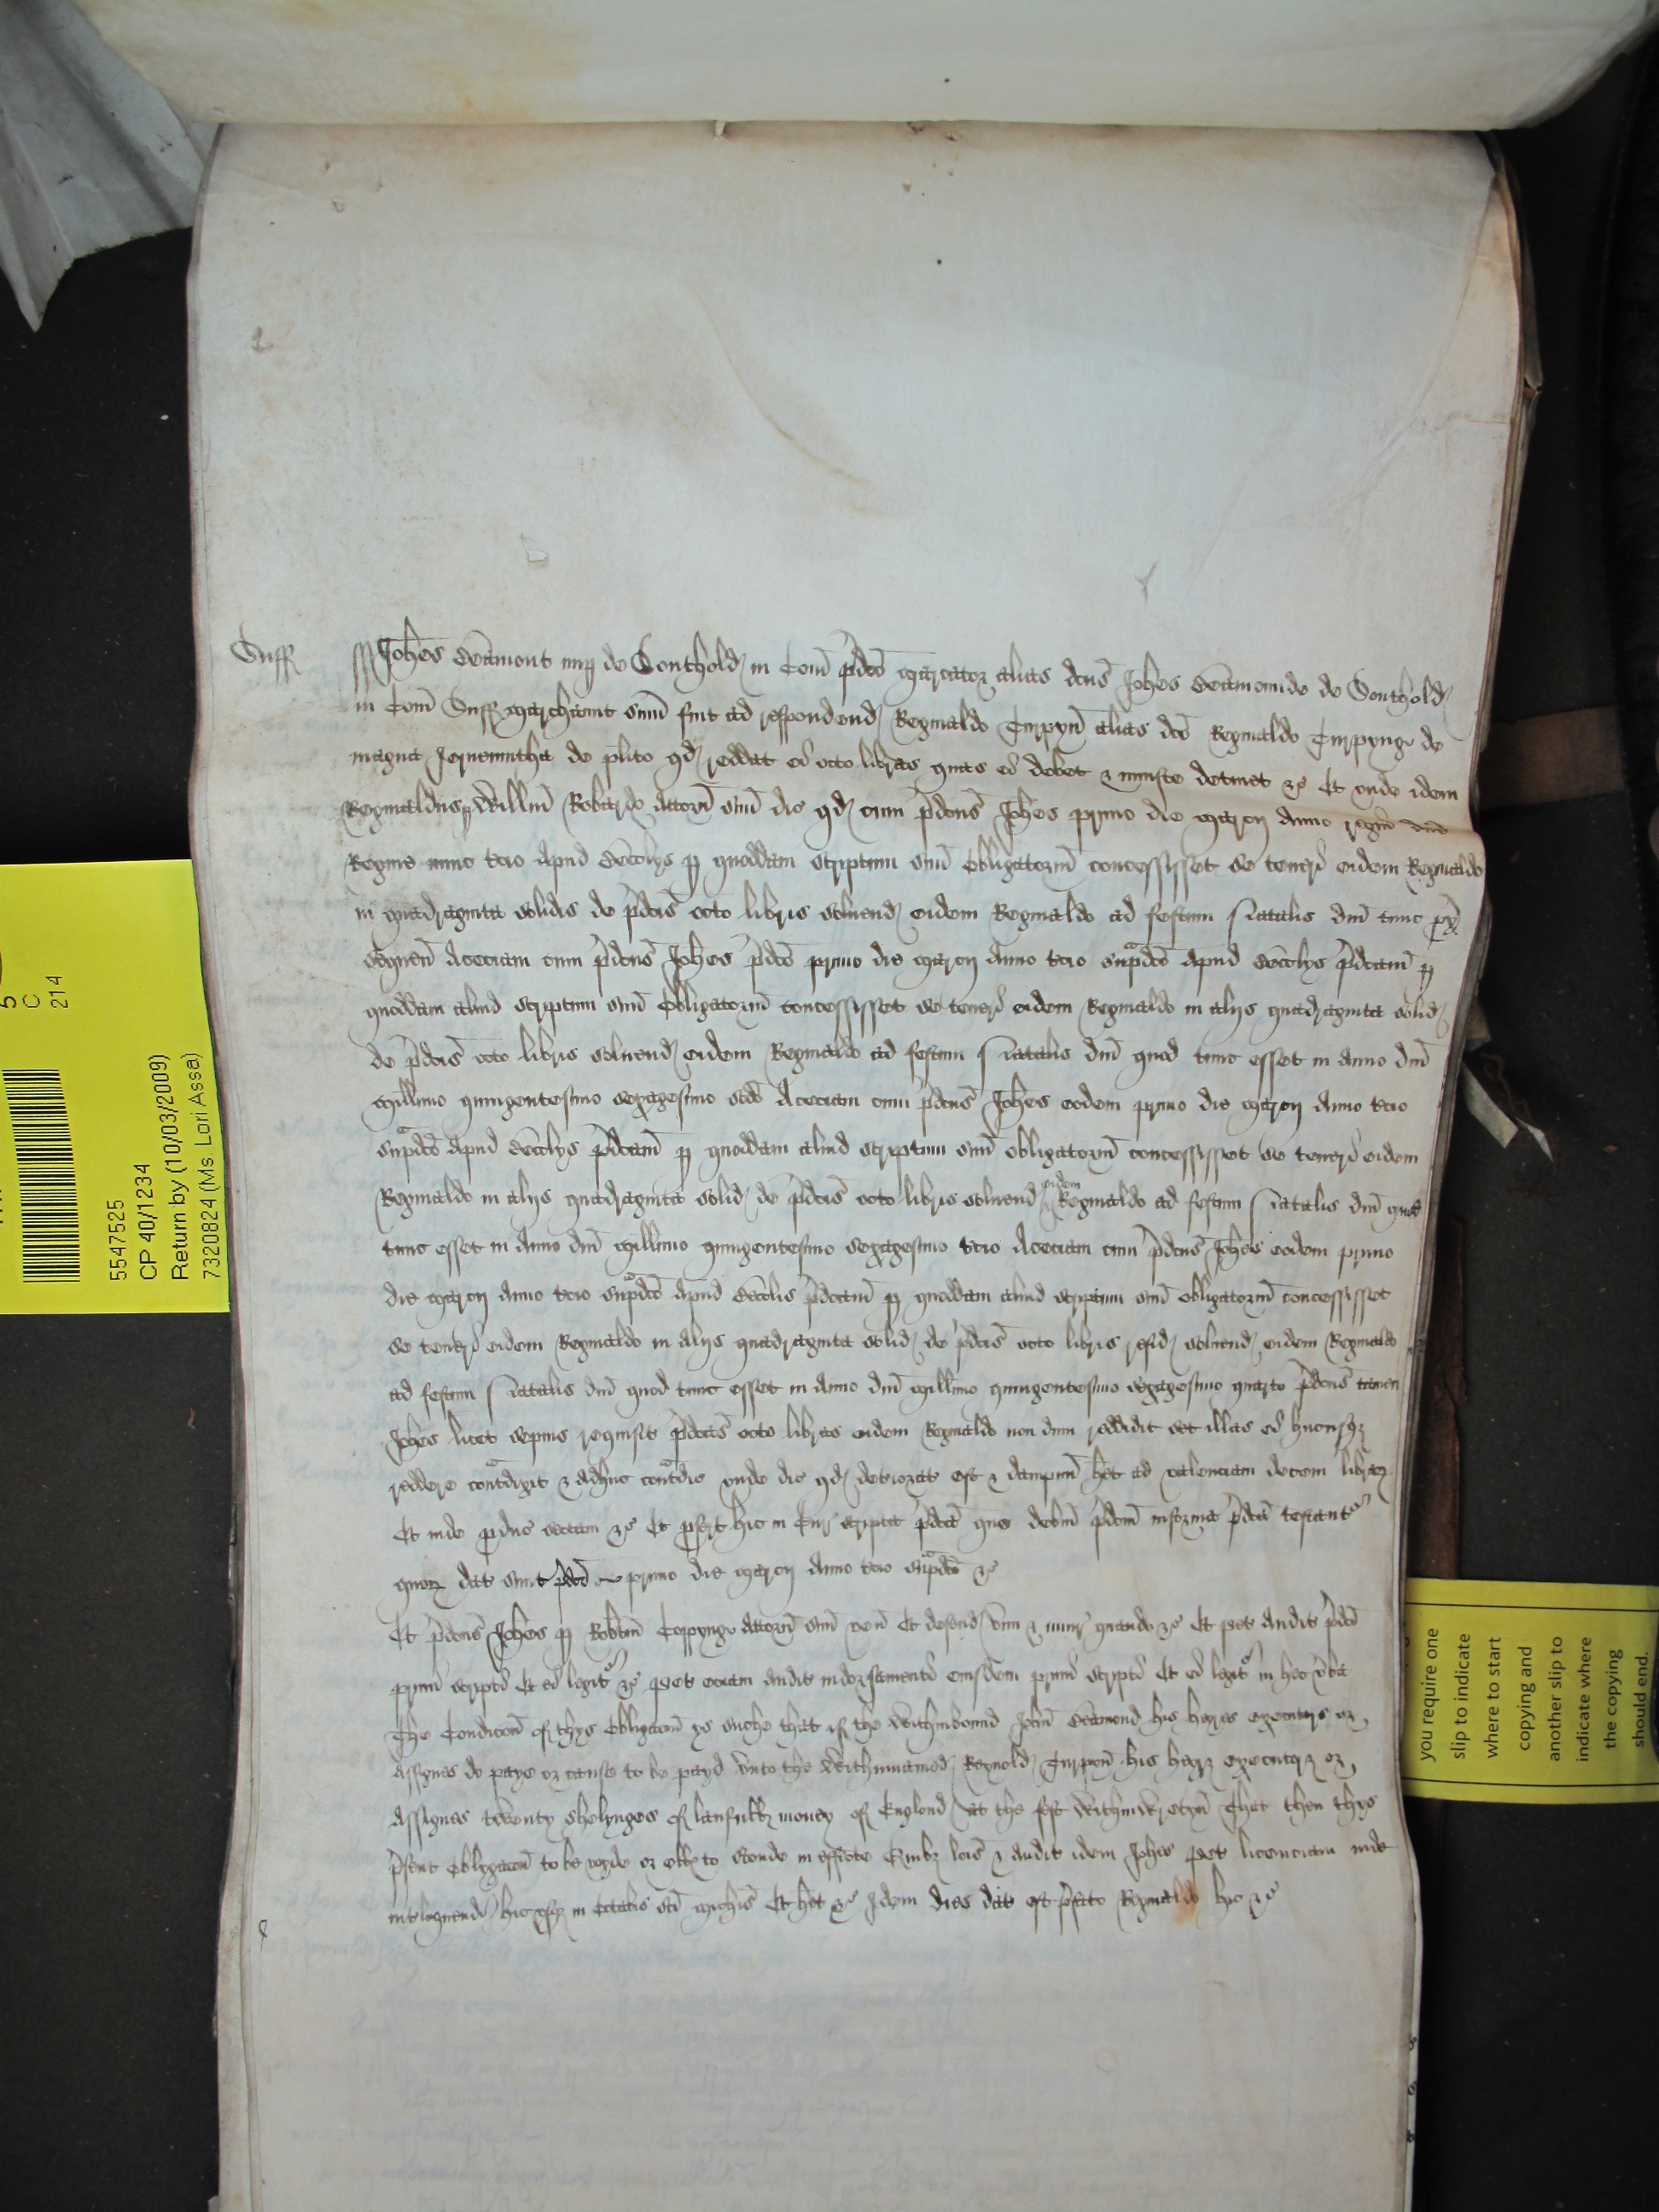 Suff
Johes Beamont nup de Southold in Com pdco mercator alias dcus Johes Beamonde de Southold
in Com Suff marchaunt sum fuit ad respondend Reginaldo Turpyn alias dco Reginaldo Turpynge de
magna Jernemutha de plito qd reddat ei octo libras quas ei debet & iniuste detinet &c Et unde idem
Reginaldus p Willm Robardo attorn suu dic qd cum pdcus Johes primo die marcij Anno regni dne
Regine nunc tcio apud Beccles p quoddam scriptum suu obligatoriu concessisset se teneri eidem Reginaldo
in quadraginta solidis de pdcis octo libris solvend eidem Reginaldo ad festum Natalis dni tunc px
sequen Aceciam cum pdcus Johes pdco primo die marcij Anno tcio supadco apud Beccles pdcam p
quoddam aliud scriptum suu obligatoriu concessisset se teneri eidem Reginaldo in alijs quadraginta solid
de pdcis octo libris solvend eidem Reginaldo ad festum Natalis dni quod tunc esset in anno dni
millimo quingentesimo sexagesimo scdo Aceciam cum pdcus Johes eodem primo die marcij Anno tcio
supadco apud Beccles pdcam p quoddam aliud scriptum suu obligatoriu concessisset se teneri eidem
Reginaldo in alijs quadraginta solid de pdcis octo libris solvend eidem Reginaldo ad festum Natalis dni quod
tunc esset in Anno dni millimo quingentesimo sexagesimo tcio Aceciam cum pdcus Johes eodem primo
die marcij Anno tcio supadco apud Beccles pdcam p quoddam aliud scriptum suu obligatoriu concessisset
se teneri eidem Reginaldo in alijs quadraginta solid de pdcis octo libris resid solvend eidem Reginaldo
ad festum Natalis dni quod tunc esset in Anno dni millimo quingentesimo sexagesimo quarto pdcus tamen
Johes licet sepius requisit pdcas octo libras eidem Reginaldo non dum reddidit set illas ei hucusqz
reddere contadixit & adhuc contadic unde dic qd deteriorat est & dampnu het ad valenciam decem librar
Et inde pduc sectam &c Et pfert hic in Cur scripta pdca que debm pdcm in forma pdca testant
quor dat sunt pdco primo die marcij Anno tcio supadco &c
Et pdcus Johes p Robtm Coppynge attorn suu ven Et defend vim & iniur quando &c Et pet audit pdci
primi scripti Et ei legit &c pet eciam audit indorsamenti eiusdem primi scripti Et ei legit in hec vba
The Condicon of thys Obligacon ys suche that if the Withinbound John Beamond his heyres executors or
Assignes do paye or cause to be payd unto the Withinnamed Reynold Turpyn his heyrz executorz or
Assignes twenty shelynges of laufull money of England at the fest Withinwretyn That then thys
psent Obligacon to be voyde or ells to stonde in effecte Quibz lcis & audit idem Johes pet licenciam inde
intloquendi hic usqz in Octabis sci Michis Et het &c Idem dies dat est pfato Reginaldo hic &c
5
C
214
5547525
CP 40/1234
Return by (10/03/2009)
73208024 (Ms. Lori Assa)
you require one
slip to indicate
where to start
copying and
another slip to
indicate where
the copying
should end.